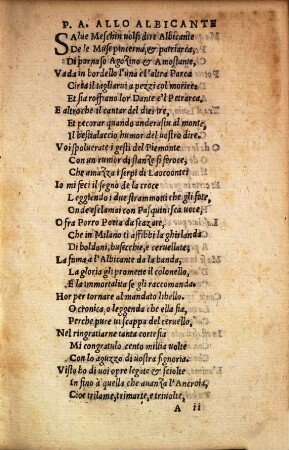 P. A. ALLO ALBICANTE
SAlue Meschin uolsi dire Albicante
De le Muse pincerna, & patriarca,
Di parnaso Agozino & Amostante,
Vada in bordello l'una e l'altra Parca
Ch'ità il tagliarui a pezzi col morire
Et sia roffiano lor Dante e'l Petrarca,
E altro che il cantar del dies ire,
Et pecorar quando anderasiu al monte,
Il bestialaccio humor del uostro dire.
Voi spoluerate i gesti del Piemonte
Con un rumor di stanze si feroce,
Che amazza i serpi di Laocoonte:
Io mi feci il segno de la croce
Leggiendo i due strammotti che gli fate,
Onde esclamai con Pasquinisca uoce;
O fra Porro Poeta da scazate,
Che in Milano ti affibbi la ghirlanda
Di boldoni, busecchie, e ceruellate;
La fuma a l'Albicante da la banda,
La gloria gli promette il colonello,
E la immortalita se gli raccomanda.
Hor per tornare al mandato libello.
O cronica, o leggenda che ella sia,
Perche pure ui scappa del ceruello,
Nel ringratiarne tanta cortesia
Mi congratulo cento milia uolte
Con lo aguzzo di uostra signoria.
Visto ho di uoi opre legate & sciolte
In fino à quella che auanza l'Ancroia,
Cioe trilame, trimarte, e triuolte,
A ii